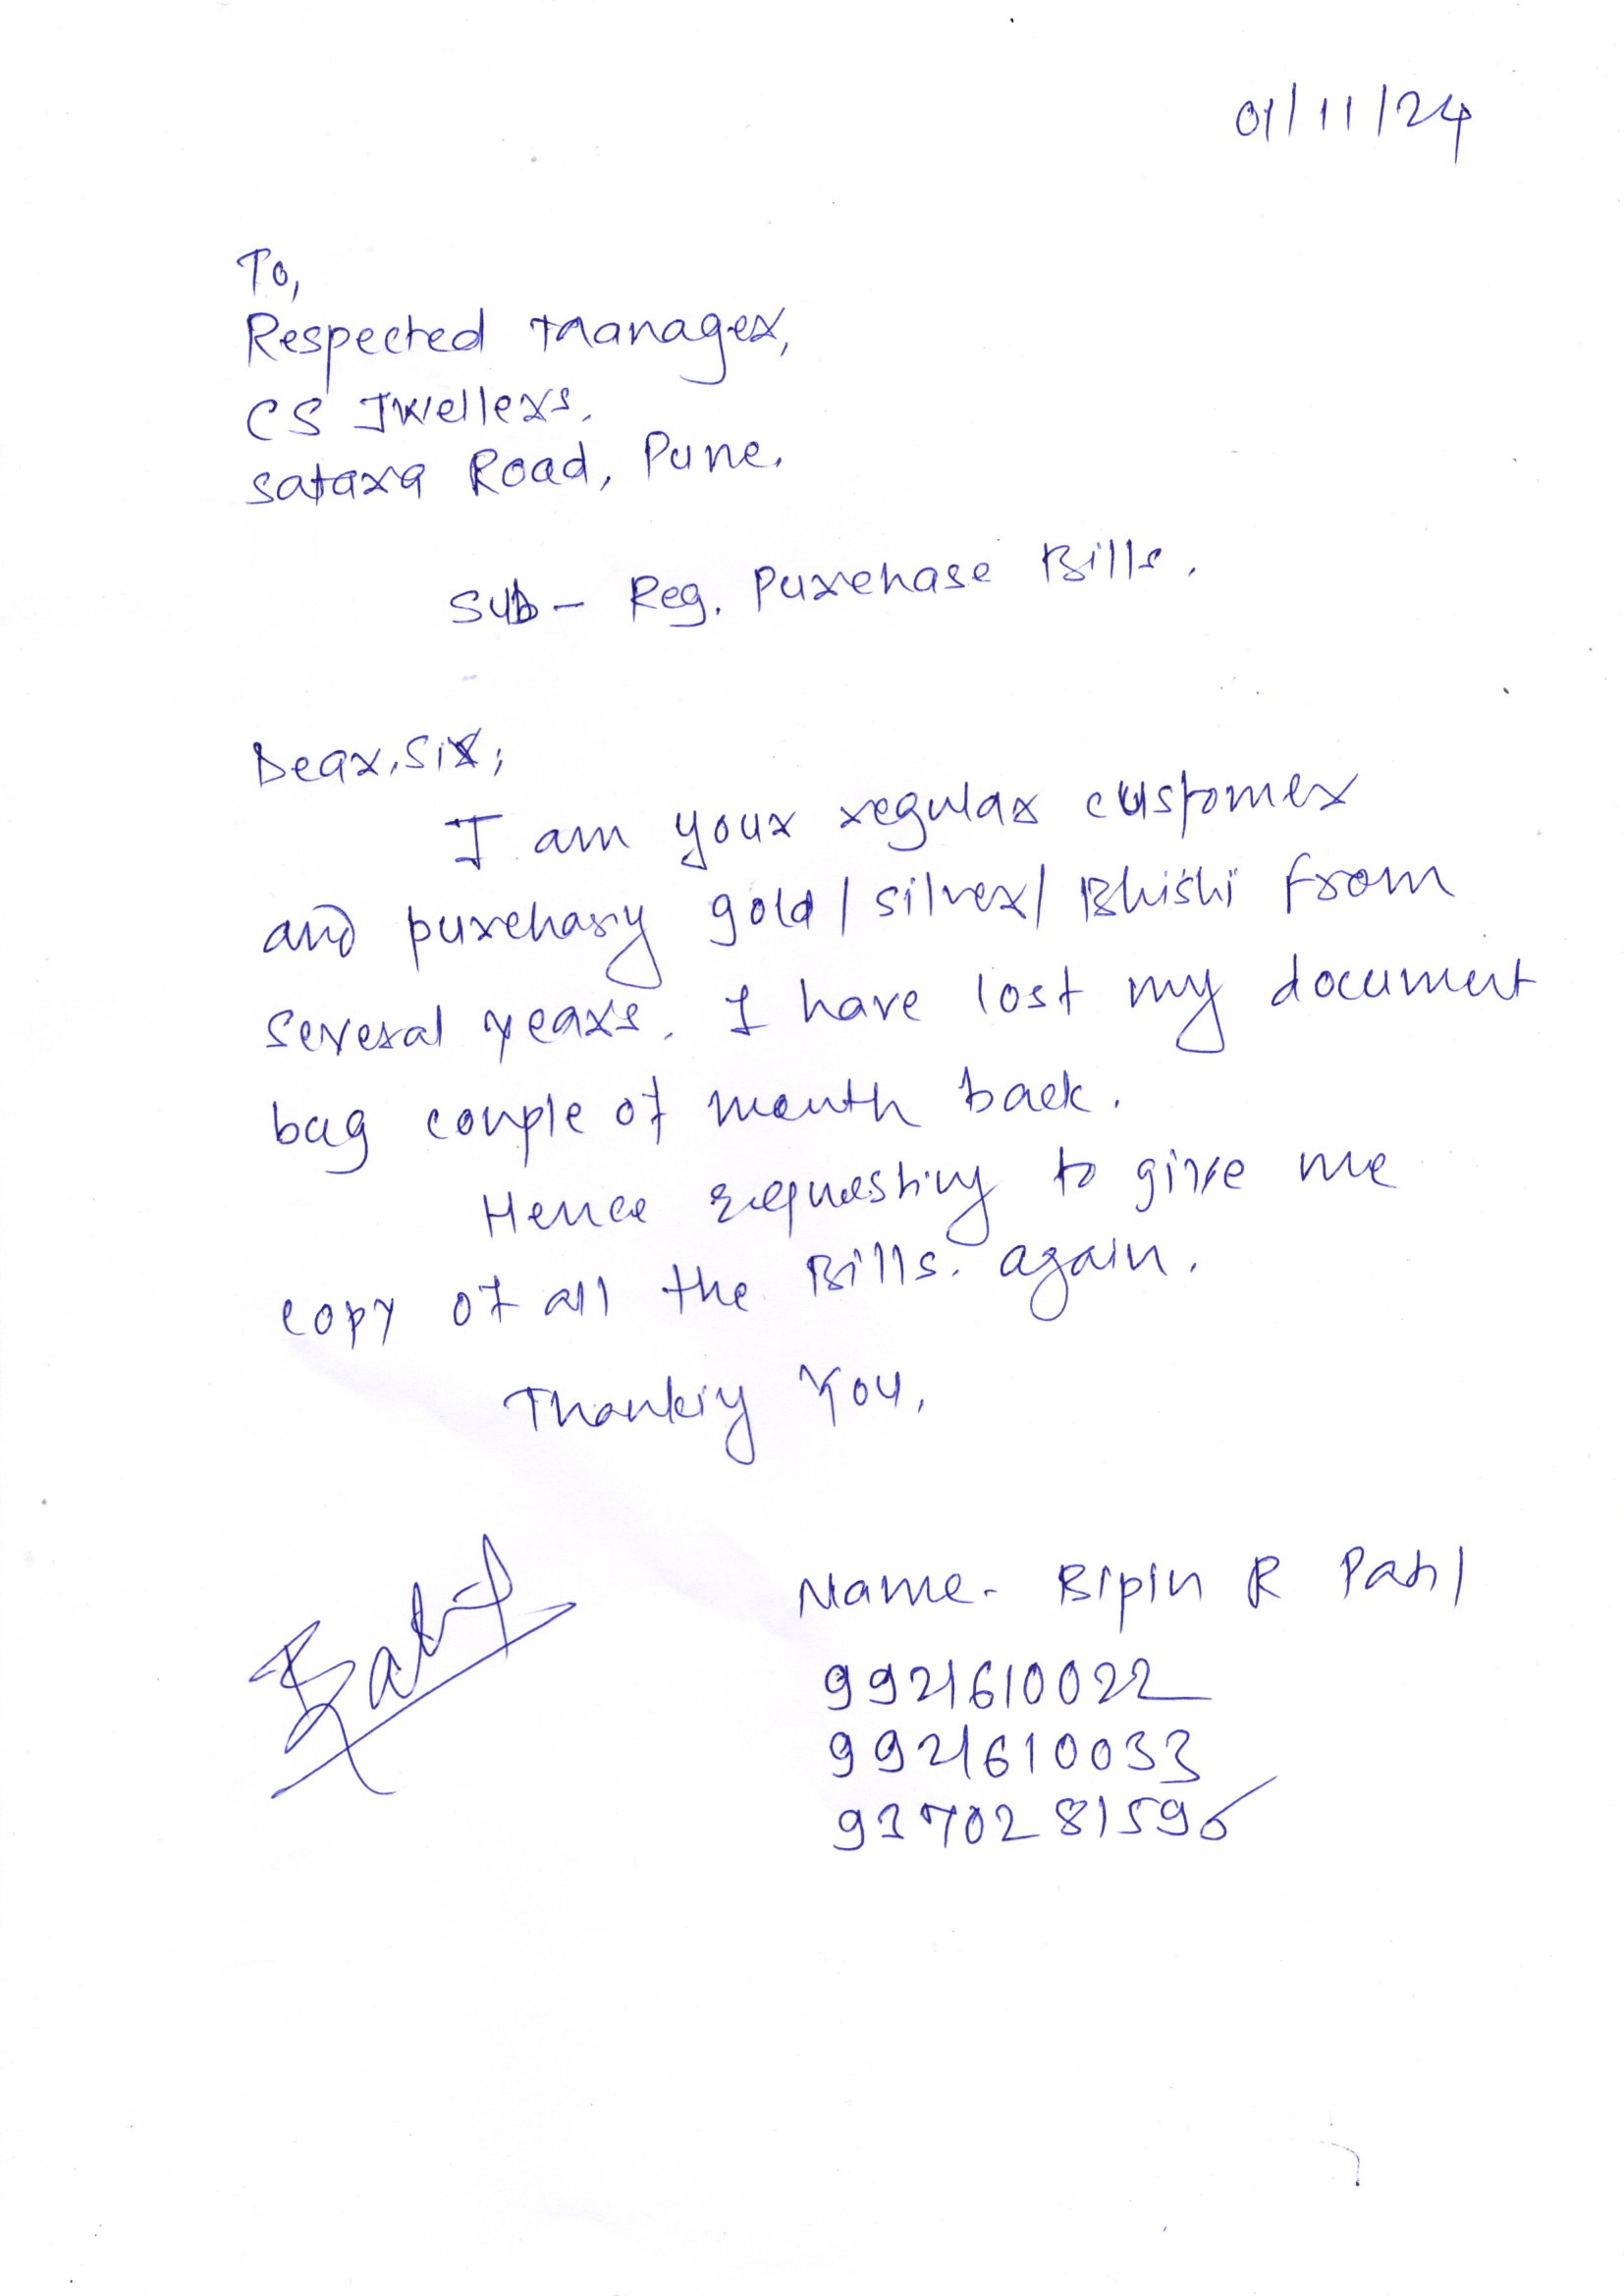 01/11/24
To,
Respected Manager,
CS Jwellers.
Satara Road, Pune.
Sub - Reg. Purchase Bills.
Dear, Sir,
I am your regular customer
and purchasing gold / silver / Bhishi from
several years. I have lost my document
bag couple of month back.
Hence requesting to give me
copy of all the Bills. again.
Thanking You,
Name - Bipin R Patil
9921610022
9921610033
9370281596